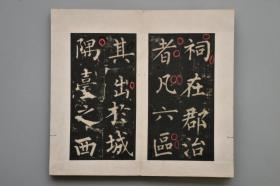 祠在郡治
者凡六區
其出於城
隅臺之西